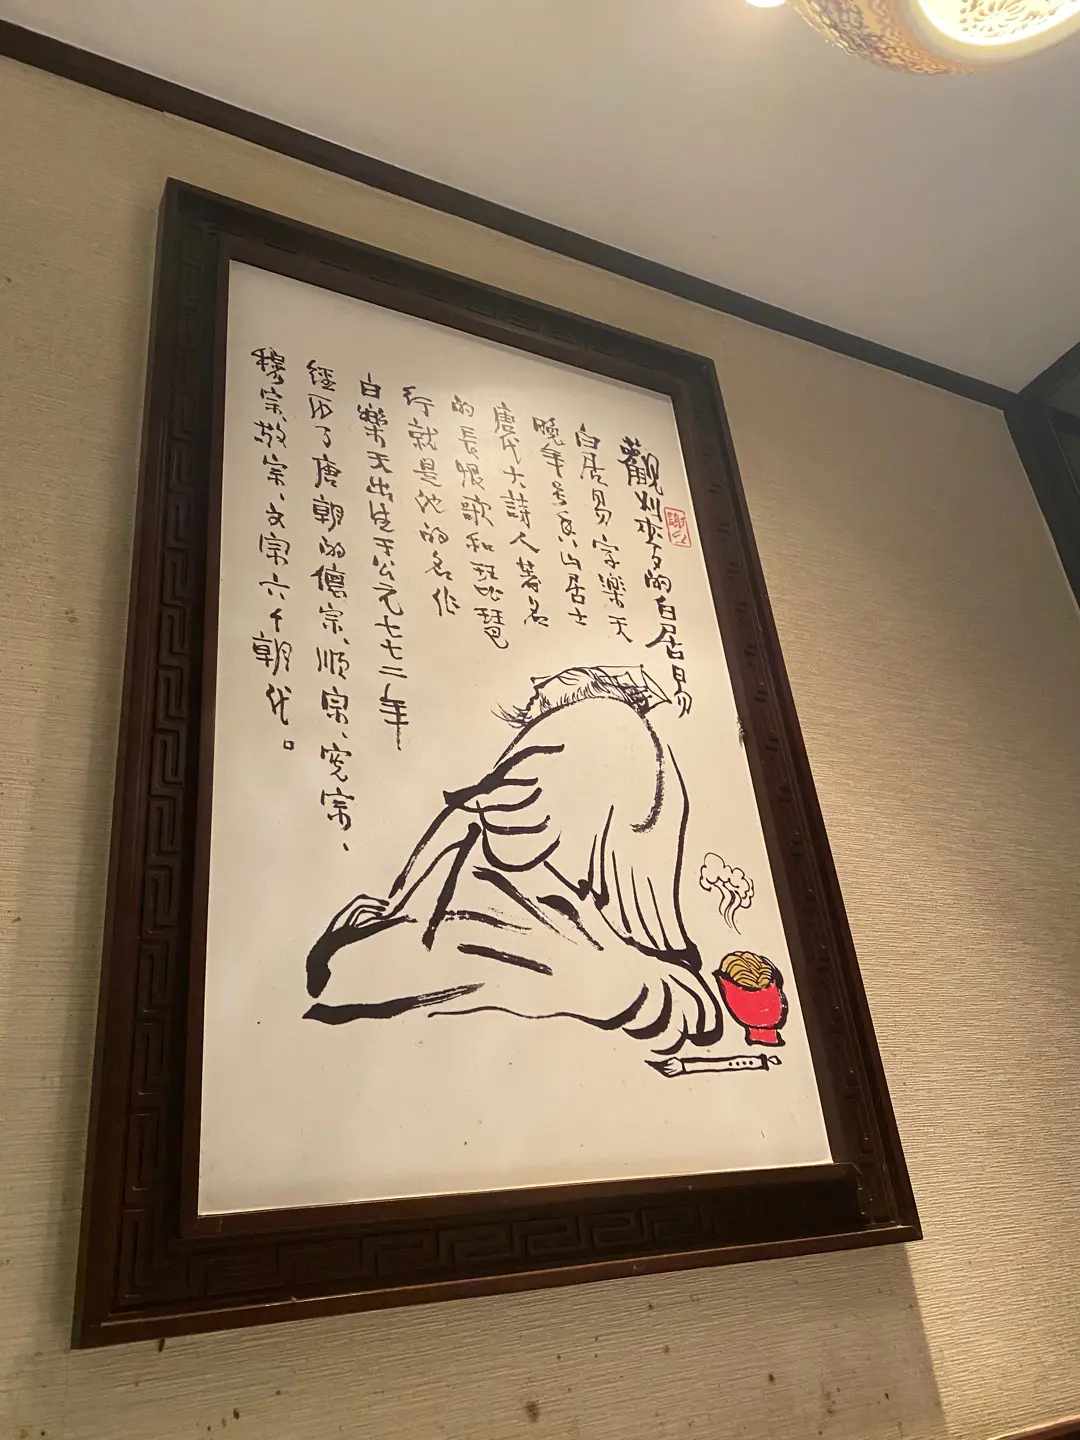 觀刈麥的白居易
白居易字樂天
晚年号香山居士
唐代大詩人著名
的長恨歌和琵琶
行就是他的名作
白樂天出生于公元七七二年
经历了唐朝的德宗、顺宗、宪宗、
穆宗、敬宗、文宗六个朝代。